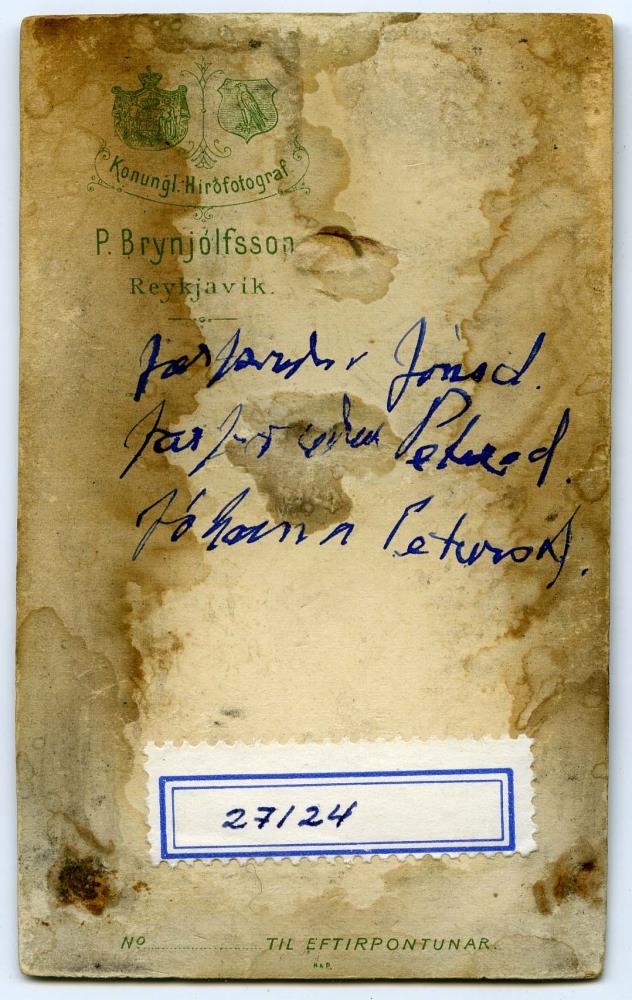 Konungl. Hirðfotograf
P. Brynjólfsson
Reykjavík.
Jónsd.
Petursd.
Jóhanna Petursd.
27/24
No TIL EFTIRPÖNTUNAR.